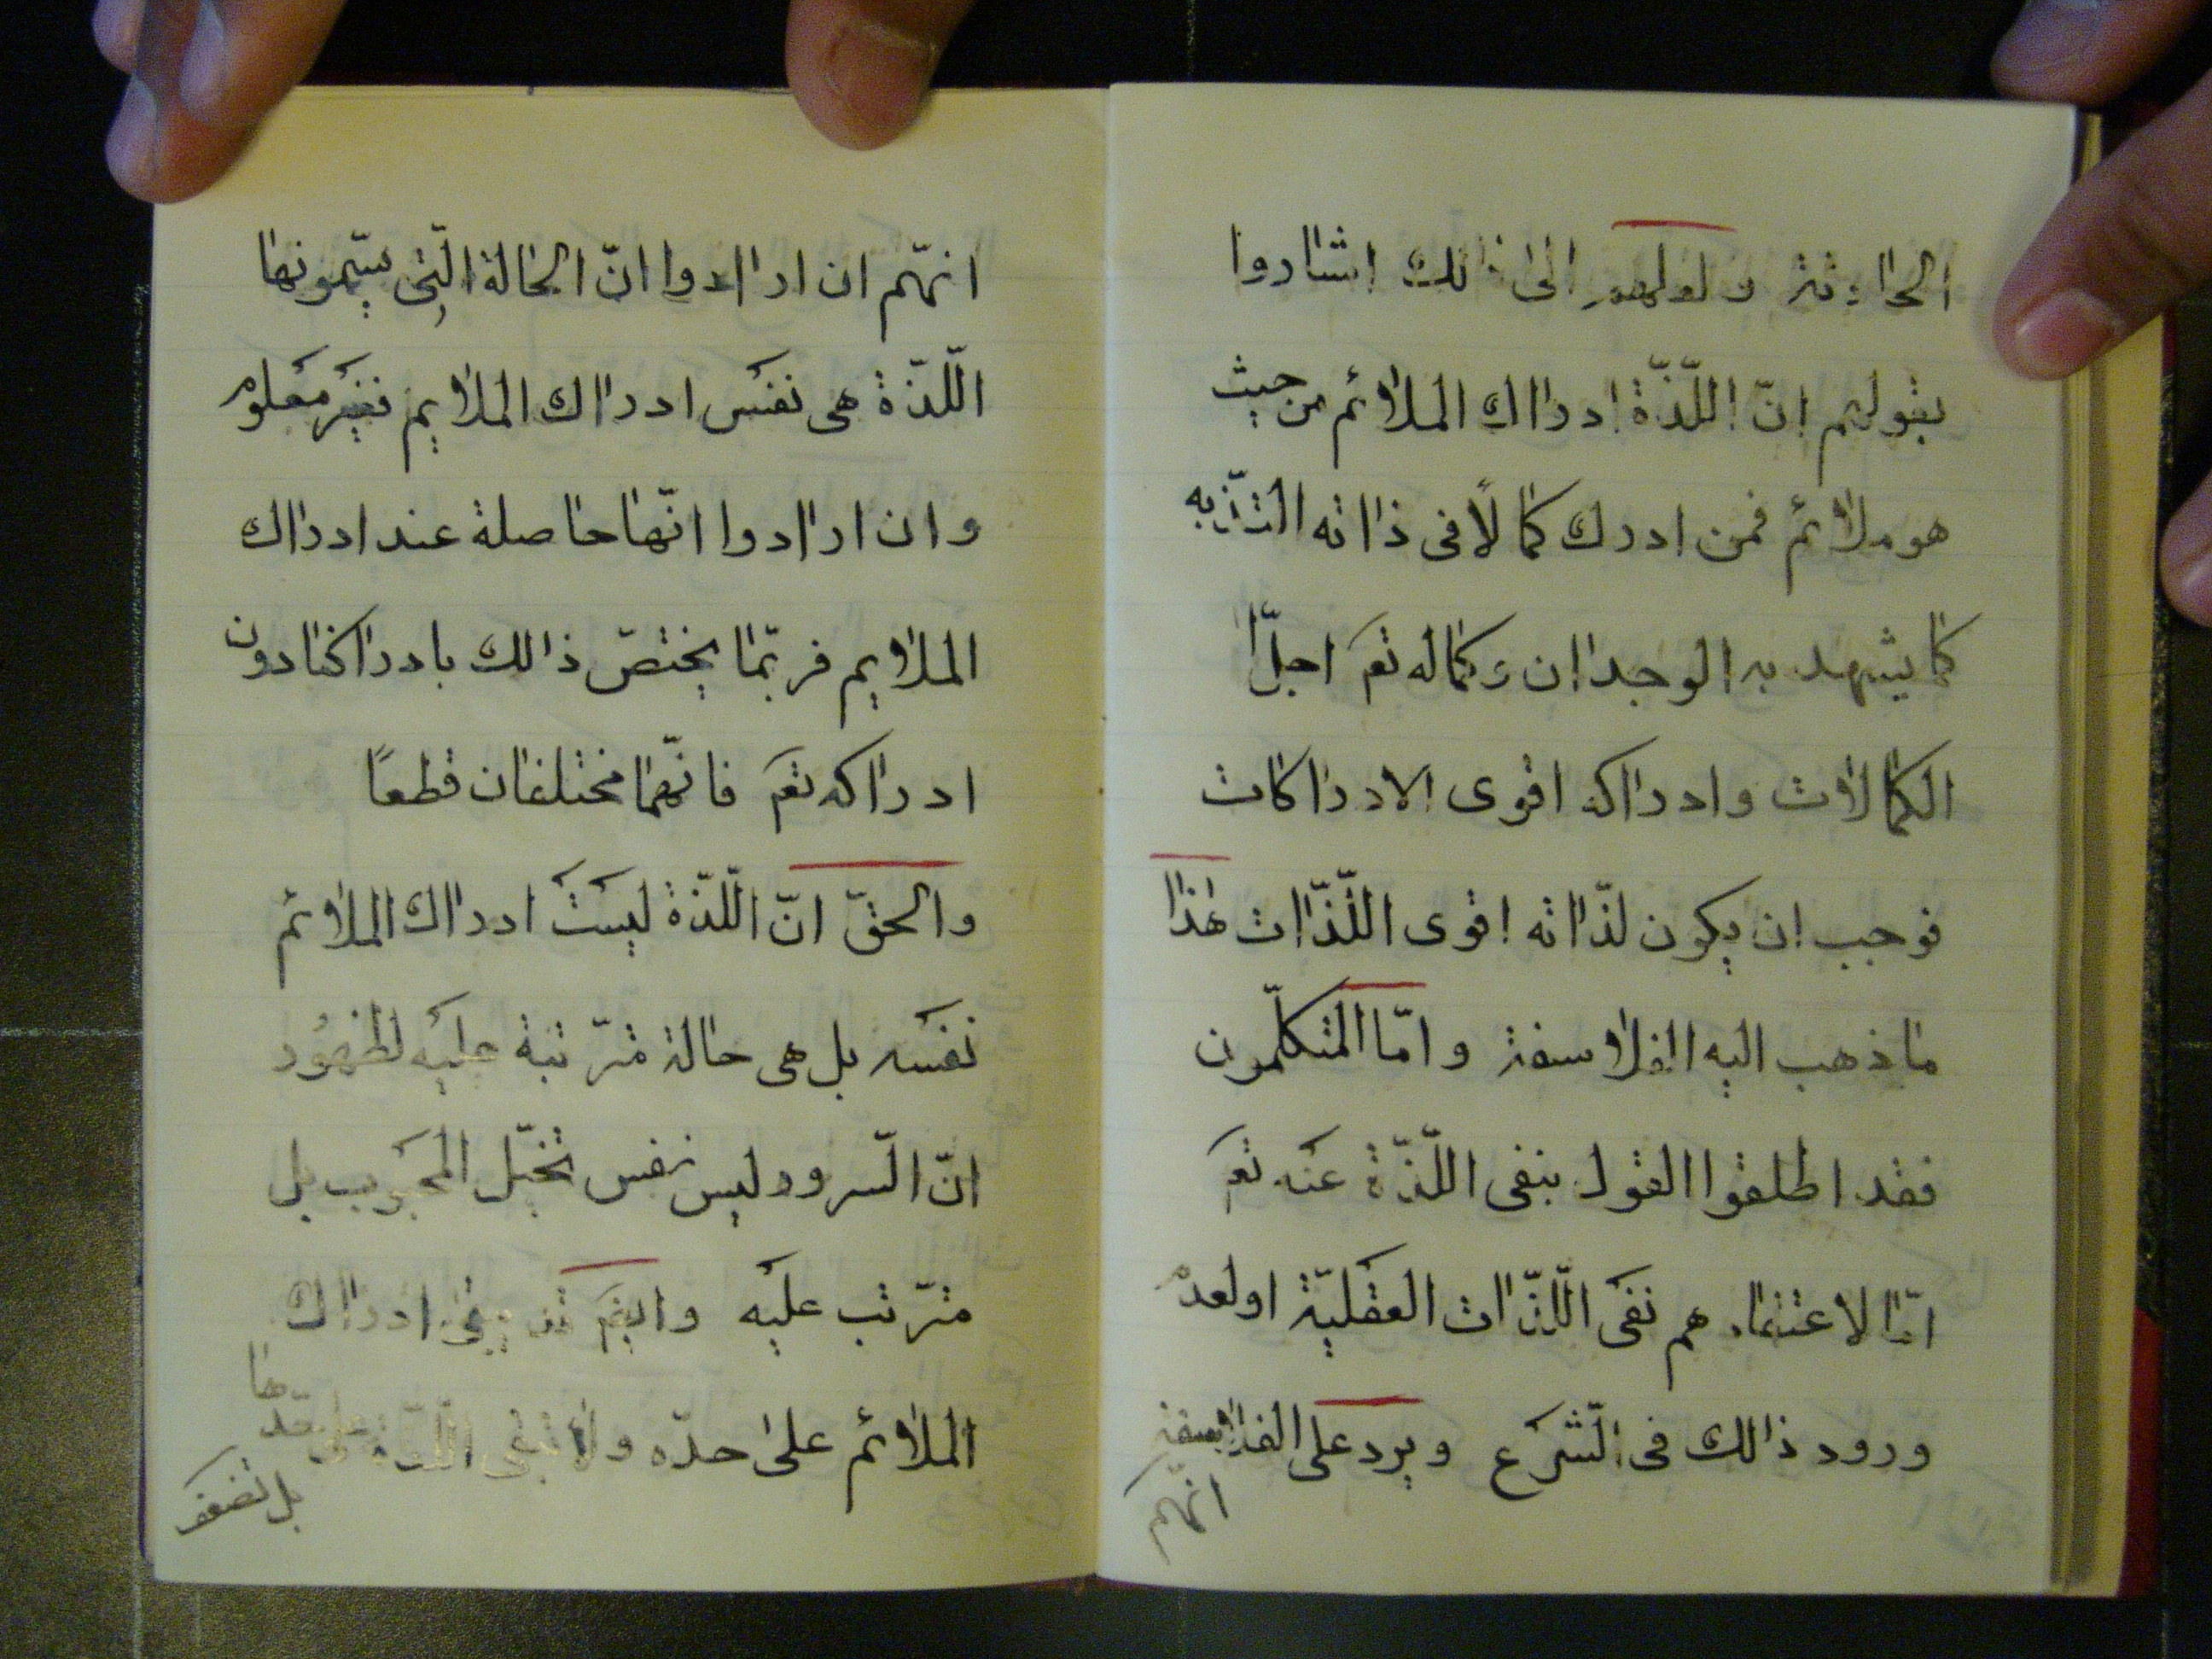 الحادثة ولعلهم الى ذالك اشاروا
بقولهم انّ اللّذّة ادراك الملائم من حيث
هو ملائم فمن ادرك كمالاً فى ذاته التذّ به
كما يشهد به الوجدان وكماله تعَ اجلّ
الكمالات وادراكه اقوى الادراكات
فوجب ان يكون لذّاته اقوى اللّذّات هذا
ما ذهب اليه الفلاسفة وامّا المتكلّمون
فقد اطلقوا القول بنفى اللّذّة عنه تعَ
امّا لاعتقادهم نفَى اللّذّات العقَليّة او لعدم
ورود ذالك فى الشّرَع ويرد على الفلاسفة
انهّم
انهّم ان ارادوا انّ الحالة الّتى يسمّونها
اللّذّة هى نفَس ادراك الملايم فغيَر معَلوم
وان ارادوا انّها حاصلة عند ادراك
الملايم فربّما يختصّ ذالك بادراكنا دون
ادراكه تعَ فانّهما مختلفان قطعًا
والحقّ انّ اللّذّة ليسَتَ ادراك الملائم
نفسَه بل هى حالة مترّتبة عليَه لظهُور
انّ السّرور ليس نفس تخيّل المحبَوب بل
مترّتب عليَه وايضَ قد يبقى ادراك
الملائم على حدّه ولا تبقى اللّذّة على حدّها
بل تضعف